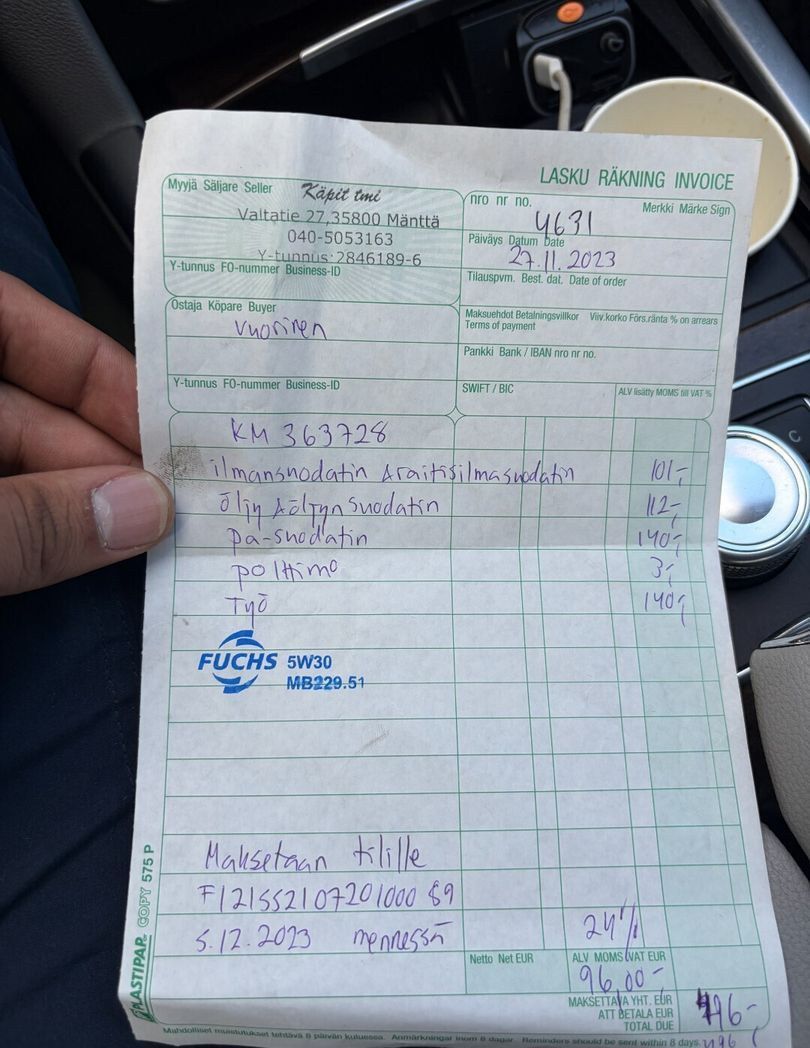 LASKU RÄKNING INVOICE
Myyjä Säljare Seller
Käpit tmi
Valtatie 27,35800 Mänttä
040-5053163
Y-tunnus:2846189-6
Y-tunnus FO-nummer Business-ID
nro nr no.
4631
Merkki Märke Sign
Päiväys Datum Date
27.11.2023
Tilauspvm. Best. dat. Date of order
Ostaja Köpare Buyer
Vuorinen
Maksuehdot Betalningsvillkor Viiv.korko Förs.ränta % on arrears
Terms of payment
Pankki Bank / IBAN nro nr no.
Y-tunnus FO-nummer Business-ID
SWIFT / BIC
ALV lisätty MOMS till VAT %
KM 363728
ilmansuodatin & raitisilmasuodatin 101,-
öljy & öljynsuodatin 112,-
pa-suodatin 140,-
polttimo 3,-
Työ 140,-
FUCHS 5W30
MB229.51
Maksetaan tilille
FI21552107201000 89
5.12.2023 mennessä
24%
Netto Net EUR
ALV MOMS VAT EUR
96,00-
MAKSETTAVA YHT. EUR
ATT BETALA EUR
TOTAL DUE
496-
PLASTIPAP COPY 575 P
Mahdolliset muistutukset tehtävä 8 päivän kuluessa. Anmärkningar inom 8 dagar. Reminders should be sent within 8 days.
496